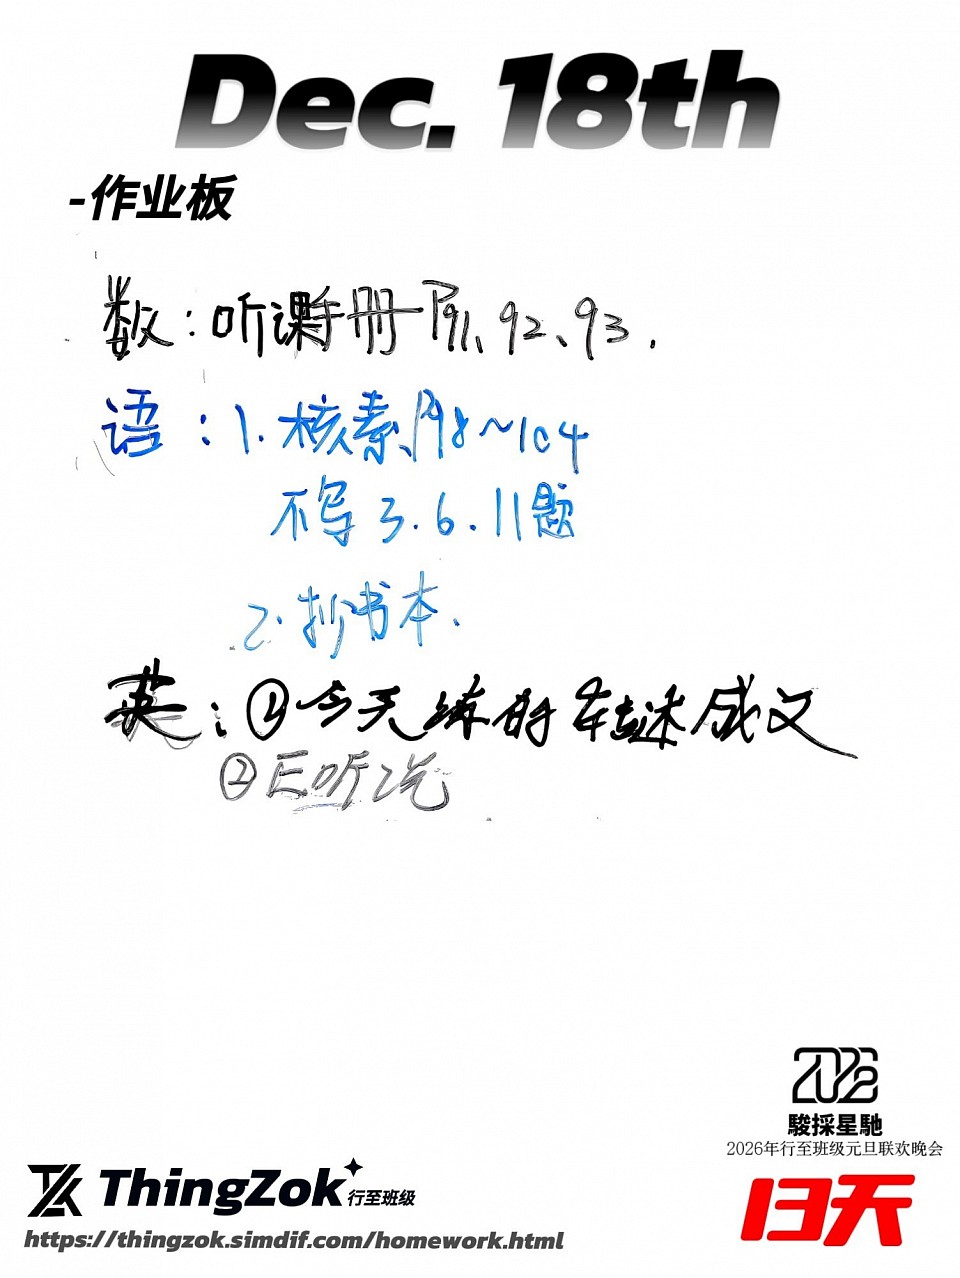 Dec. 18th
-作业板
数：听课手册 P91、92、93.
语：1.核素、P98~104
不写3.6.11题
2.抄书本.
英：①今天练的 成文
②E听说
2026
駿採星馳
2026年行至班级元旦联欢晚会
13天
ThingZok 行至班级
https://thingzok.simdif.com/homework.html